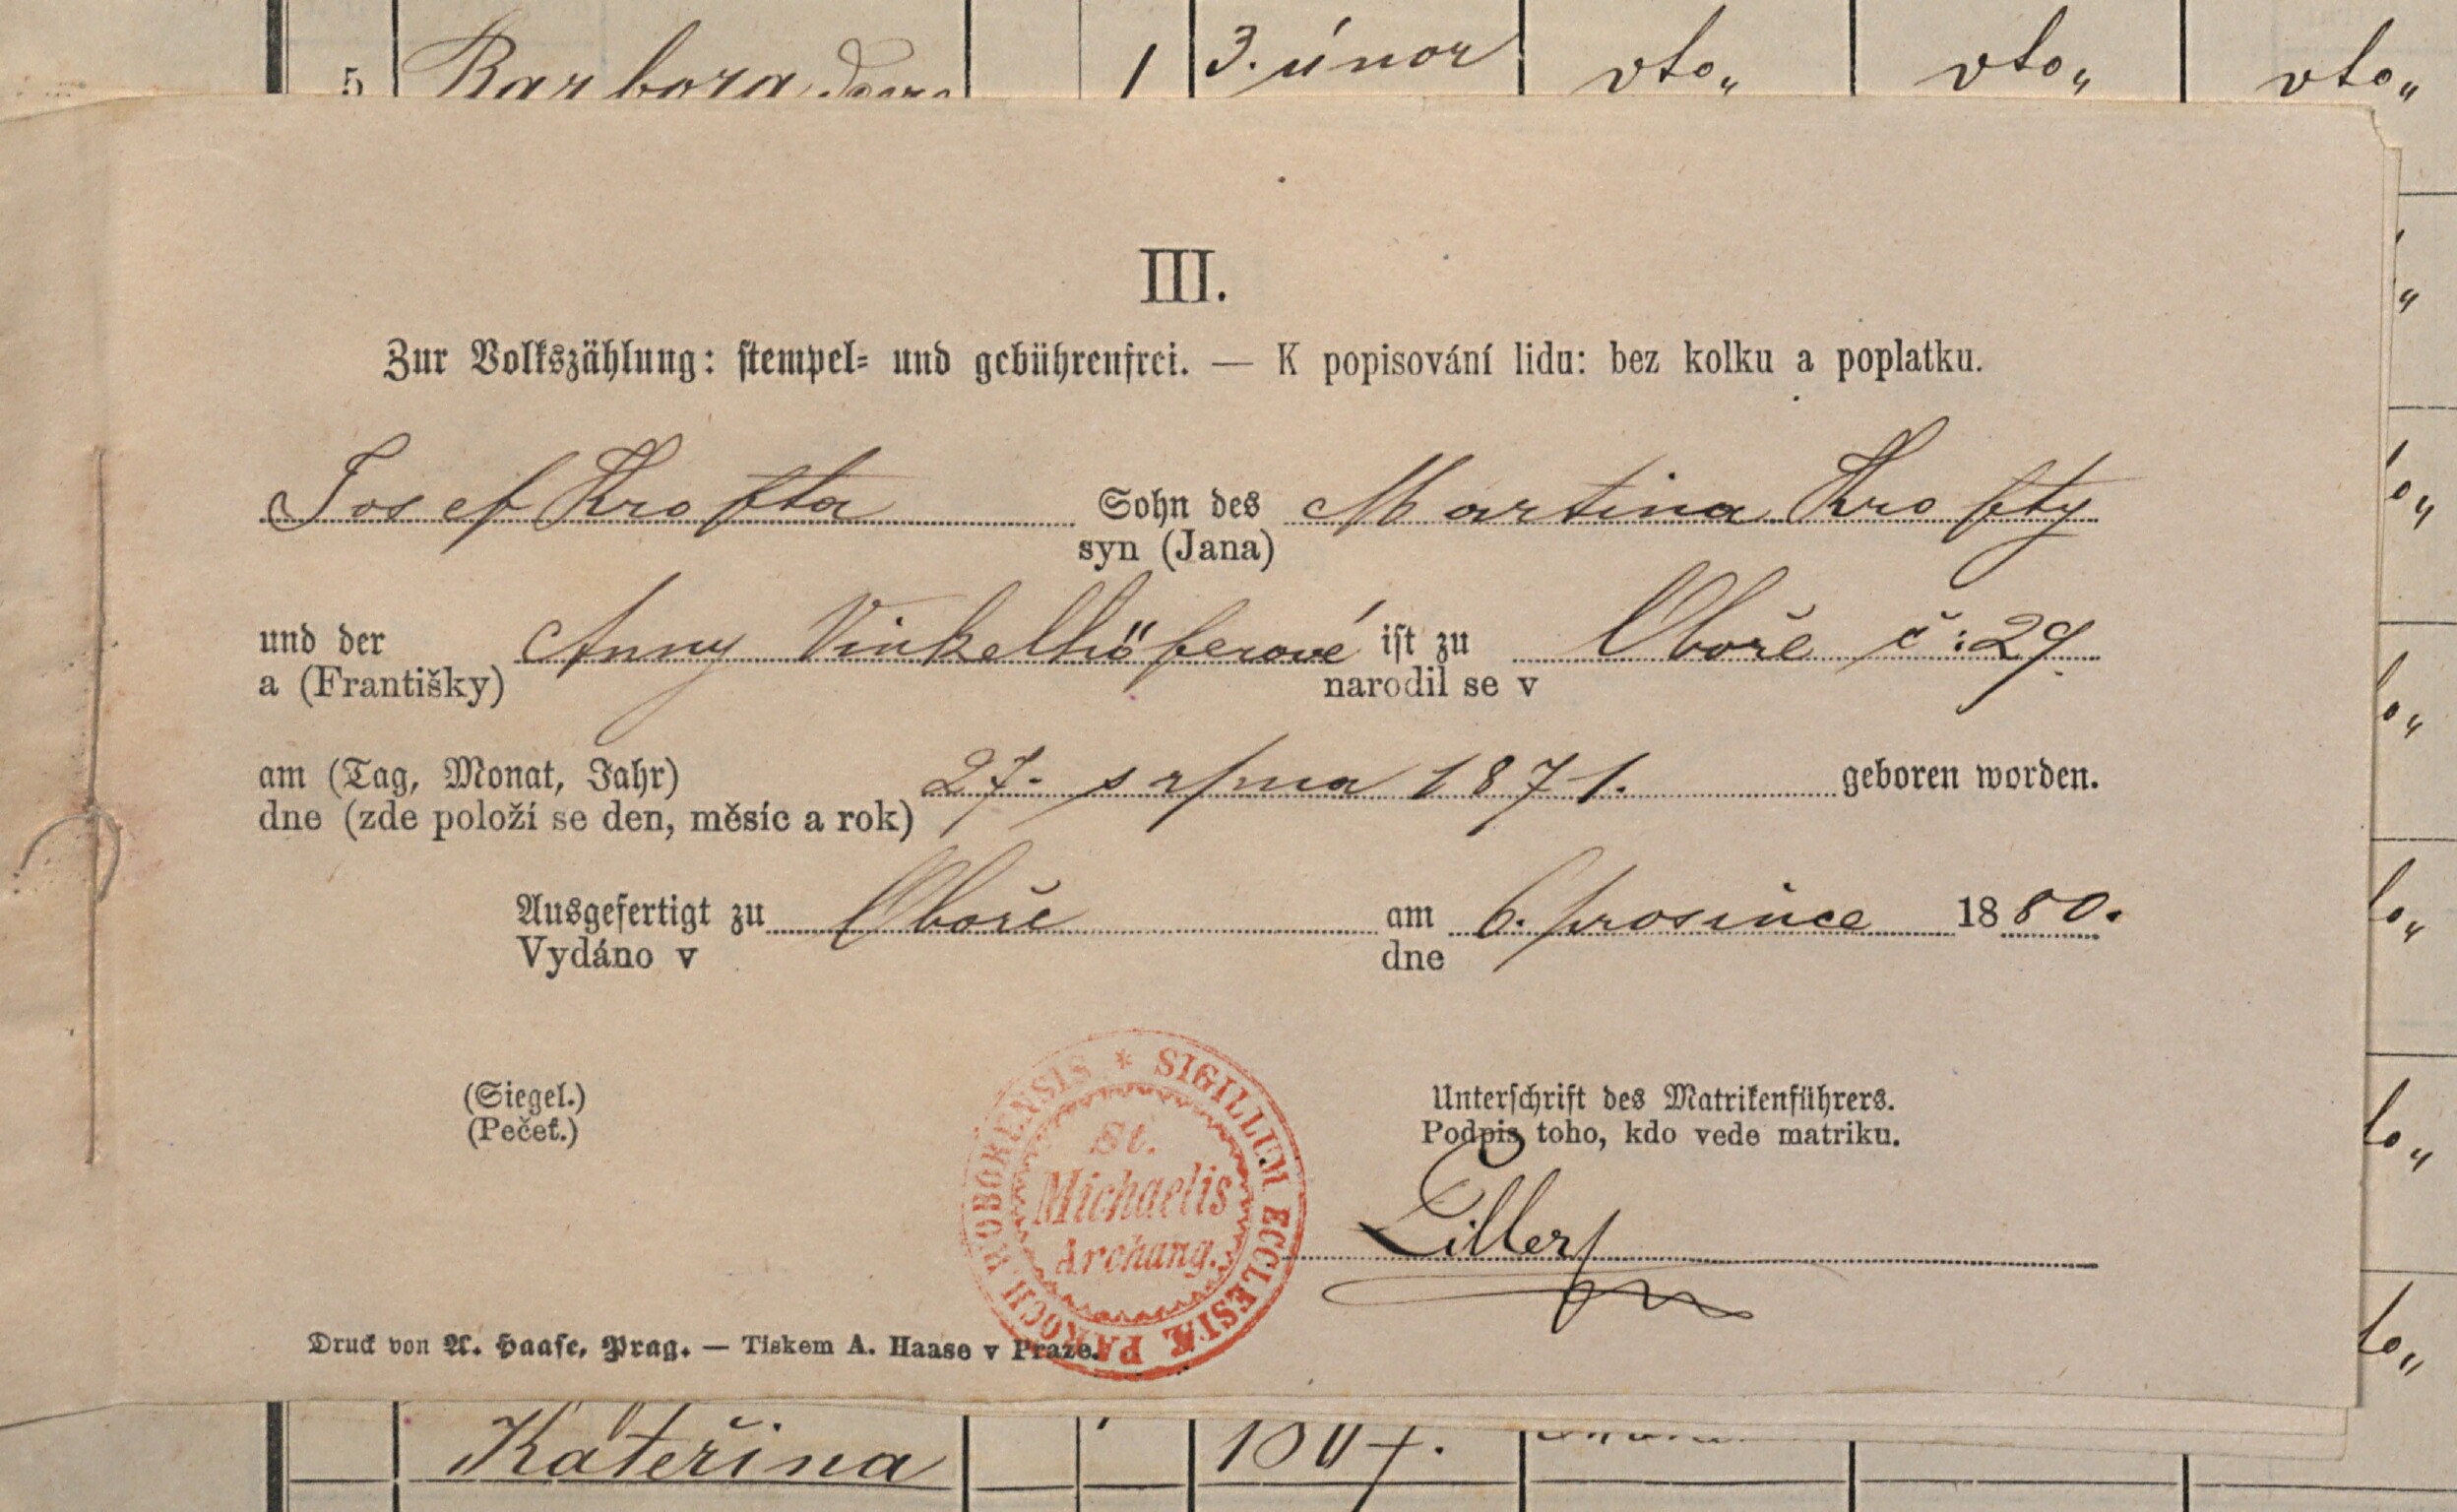 5 Barbora dcera 1 3. únor vto„ vto„ vto„
III.
Zur Volkszählung: stempel- und gebührenfrei. — K popisování lidu: bez kolku a poplatku.
Josef Krofta Sohn des Martina Krofty
syn (Jana)
und der Anny Vinkelhöferové ist zu Oboře č: 29.
a (Františky) narodil se v
am (Tag, Monat, Jahr) 27. srpna 1871. geboren worden.
dne (zde položí se den, měsíc a rok)
Ausgefertigt zu Oboře am 6. prosince 1880.
Vydáno v dne
(Siegel.) Unterschrift des Matrikenführers.
(Pečeť.) Podpis toho, kdo vede matriku.
* SIGILLUM ECCLESIÆ PAROCH HOBORENSIS
St.
Michaelis
Archang.
Druck von A. Haase, Prag. — Tiskem A. Haase v Praze.
Kateřina